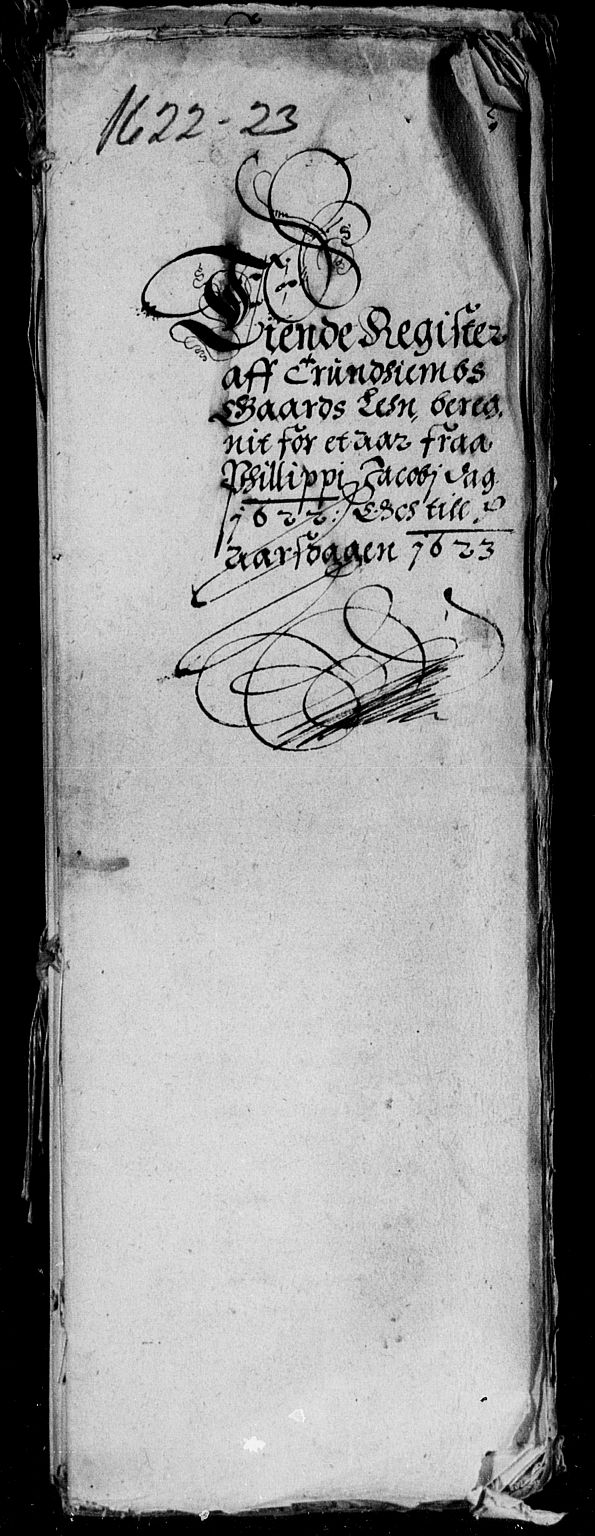 1622-23
Tiende Register
aff Trundhiembs
Gaards Lehn, bereg,
nit for et aar fraa
Phillippi Jacobj dag
1622: Och till
aarsdagen 1623